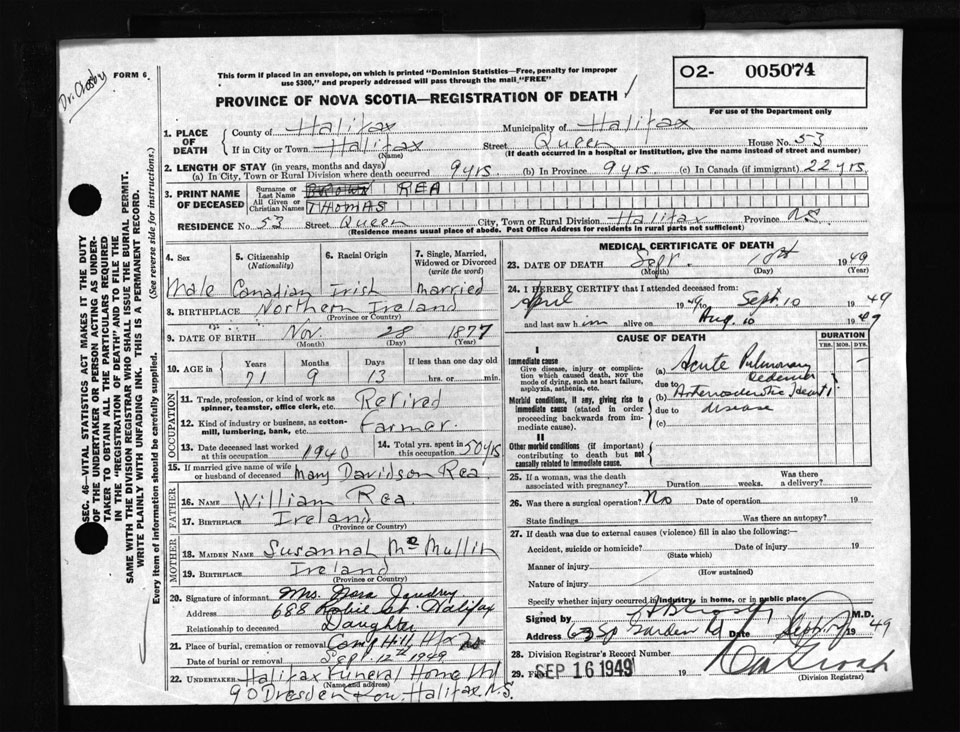 Dr. Crosby
FORM 6.
This form if placed in an envelope, on which is printed "Dominion Statistics—Free, penalty for improper
use $300," and properly addressed will pass through the mail "FREE"
PROVINCE OF NOVA SCOTIA—REGISTRATION OF DEATH
O2- 005074
For use of the Department only
1. PLACE OF DEATH { County of Halifax Municipality of Halifax
If in City or Town Halifax (Name) Street Queen House No. 53
(If death occurred in a hospital or institution, give the name instead of street and number)
2. LENGTH OF STAY (in years, months and days)
(a) In City, Town or Rural Division where death occurred 9 yrs. (b) In Province 9 yrs. (c) In Canada (if immigrant) 22 yrs.
3. PRINT NAME OF DECEASED { Surname or Last Name REA
All Given or Christian Names THOMAS
RESIDENCE No. 53 Street Queen City, Town or Rural Division Halifax Province N.S.
(Residence means usual place of abode. Post Office Address for residents in rural parts not sufficient)
4. Sex 5. Citizenship (Nationality) 6. Racial Origin 7. Single, Married, Widowed or Divorced (write the word)
Male Canadian Irish Married
8. BIRTHPLACE Northern Ireland
(Province or Country)
9. DATE OF BIRTH Nov. 28 1877
(Month) (Day) (Year)
10. AGE in Years Months Days If less than one day old
71 9 13 hrs. or min.
OCCUPATION
11. Trade, profession, or kind of work as spinner, teamster, office clerk, etc. Retired
12. Kind of industry or business, as cotton-mill, lumbering, bank, etc. Farmer.
13. Date deceased last worked at this occupation 1940 14. Total yrs. spent in this occupation 50 yrs
15. If married give name of wife or husband of deceased Mary Davidson Rea
FATHER
16. NAME William Rea
17. BIRTHPLACE Ireland
(Province or Country)
MOTHER
18. MAIDEN NAME Susannah McMullin
19. BIRTHPLACE Ireland
(Province or Country)
20. Signature of informant Mrs. Jaudry
Address 688 Robie St. Halifax
Relationship to deceased Daughter
21. Place of burial, cremation or removal Camp Hill, Hfx NS
Date of burial or removal Sept. 12th 1949
22. UNDERTAKER Halifax Funeral Home Ltd
(Name and address)
90 Dresden Row, Halifax N.S.
MEDICAL CERTIFICATE OF DEATH
23. DATE OF DEATH Sept. 1949
(Month) (Day) (Year)
24. I HEREBY CERTIFY that I attended deceased from:
April 1949 to Sept 10 1949
and last saw him alive on Aug. 10 1949
CAUSE OF DEATH DURATION
YRS. MOS. DYS.
I
Immediate cause
Give disease, injury or complication which caused death, NOT the mode of dying, such as heart failure, asphyxia, asthenia, etc.
(a) Acute Pulmonary Oedema
due to
Morbid conditions, if any, giving rise to immediate cause (stated in order proceeding backwards from immediate cause).
(b) Arteriosclerotic heart
due to disease
(c)
II
Other morbid conditions (if important) contributing to death but not causally related to immediate cause.
25. If a woman, was the death associated with pregnancy? Duration weeks. Was there a delivery?
26. Was there a surgical operation? No Date of operation 19
State findings Was there an autopsy?
27. If death was due to external causes (violence) fill in also the following:—
Accident, suicide or homicide? Date of injury 19
(State which)
Manner of injury
(How sustained)
Nature of injury
Specify whether injury occurred in industry, in home, or in public place
Signed by M.D.
Address 63 Sp Garden Rd Date Sept 1949
28. Division Registrar's Record Number
29. Filed SEP 16 1949 19
(Division Registrar)
SEC. 46—VITAL STATISTICS ACT MAKES IT THE DUTY
OF THE UNDERTAKER OR PERSON ACTING AS UNDER-
TAKER TO OBTAIN ALL THE PARTICULARS REQUIRED
IN THE "REGISTRATION OF DEATH" AND TO FILE THE
SAME WITH THE DIVISION REGISTRAR WHO SHALL ISSUE THE BURIAL PERMIT.
WRITE PLAINLY WITH UNFADING INK. THIS IS A PERMANENT RECORD.
Every item of information should be carefully supplied. (See reverse side for instructions.)